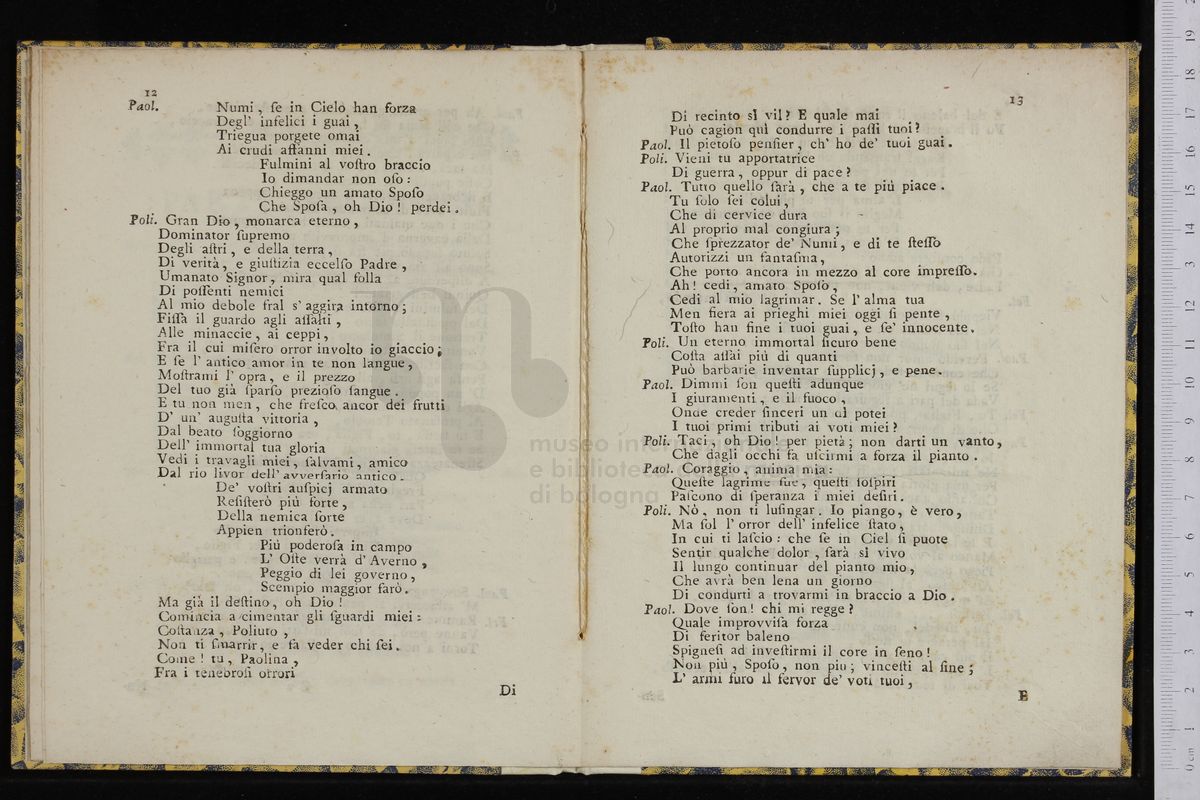 12
Paol. Numi, ſe in Cielo han forza
Degl' infelici i guai,
Triegua porgete omai
Ai crudi affanni miei.
Fulmini al voſtro braccio
Io dimandar non oſo:
Chieggo un amato Spoſo
Che Spoſa, oh Dio! perdei.
Poli. Gran Dio, monarca eterno,
Dominator ſupremo
Degli aſtri, e della terra,
Di verità, e giuſtizia eccelſo Padre,
Umanato Signor, mira qual folla
Di poſſenti nemici
Al mio debole fral s' aggira intorno;
Fiſſa il guardo agli aſſalti,
Alle minaccie, ai ceppi,
Fra il cui miſero orror involto io giaccio;
E ſe l' antico amor in te non langue,
Moſtrami l' opra, e il prezzo
Del tuo già ſparſo prezioſo ſangue.
E tu non men, che freſco ancor dei frutti
D' un' auguſta vittoria,
Dal beato ſoggiorno
Dell' immortal tua gloria
Vedi i travagli miei, ſalvami, amico
Dal rio livor dell' avverſario antico.
De' voſtri auſpicj armato
Reſiſterò più forte,
Della nemica ſorte
Appien trionferò.
Più poderoſa in campo
L' Oſte verrà d' Averno,
Peggio di lei governo,
Scempio maggior farò.
Ma già il deſtino, oh Dio!
Comincia a cimentar gli ſguardi miei:
Coſtanza, Poliuto,
Non ti ſmarrir, e fa veder chi ſei.
Come! tu, Paolina,
Fra i tenebroſi orrori
Di
13
Di recinto sì vil? E quale mai
Può cagion quì condurre i paſſi tuoi?
Paol. Il pietoſo penſier, ch' ho de' tuoi guai.
Poli. Vieni tu apportatrice
Di guerra, oppur di pace?
Paol. Tutto quello ſarà, che a te più piace.
Tu ſolo ſei colui,
Che di cervice dura
Al proprio mal congiura;
Che ſprezzator de' Numi, e di te ſteſſo
Autorizzi un fantaſma,
Che porto ancora in mezzo al core impreſſo.
Ah! cedi, amato Spoſo,
Cedi al mio lagrimar. Se l' alma tua
Men fiera ai prieghi miei oggi ſi pente,
Toſto han fine i tuoi guai, e ſe' innocente.
Poli. Un eterno immortal ſicuro bene
Coſta aſſai più di quanti
Può barbarie inventar ſupplicj, e pene.
Paol. Dimmi ſon queſti adunque
I giuramenti, e il fuoco,
Onde creder ſinceri un dì potei
I tuoi primi tributi ai voti miei?
Poli. Taci, oh Dio! per pietà; non darti un vanto,
Che dagli occhi fa uſcirmi a forza il pianto.
Paol. Coraggio, anima mia:
Queſte lagrime ſue, queſti ſoſpiri
Paſcono di ſperanza i miei deſiri.
Poli. Nò, non ti luſingar. Io piango, è vero,
Ma ſol l' orror dell' infelice ſtato,
In cui ti laſcio: che ſe in Ciel ſi puote
Sentir qualche dolor, ſarà sì vivo
Il lungo continuar del pianto mio,
Che avrà ben lena un giorno
Di condurti a trovarmi in braccio a Dio.
Paol. Dove ſon! chi mi regge?
Quale improvviſa forza
Di feritor baleno
Spigneſi ad inveſtirmi il core in ſeno!
Non più, Spoſo, non più; vinceſti al fine;
L' armi furo il fervor de' voti tuoi,
E